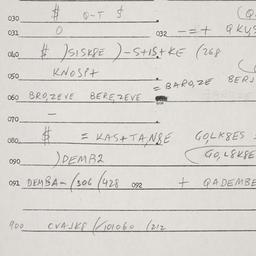 030 $ Q-T $
031 0 032 -=+ QKUS
040 $ )SISK8E )-S+IS+KE (268
050 KNOSP+
= BARO,ZE BERJ
060 BRO,ZEVE BERE,ZEVE
070 -
080 $ = KAS+TA,N8E GO,LK8ES =
090 )DEMB2 (GO,L8K8E
091 DEMBA- /306 /428 092 + QADEMBE
900 CVAJK8 /101060 /212